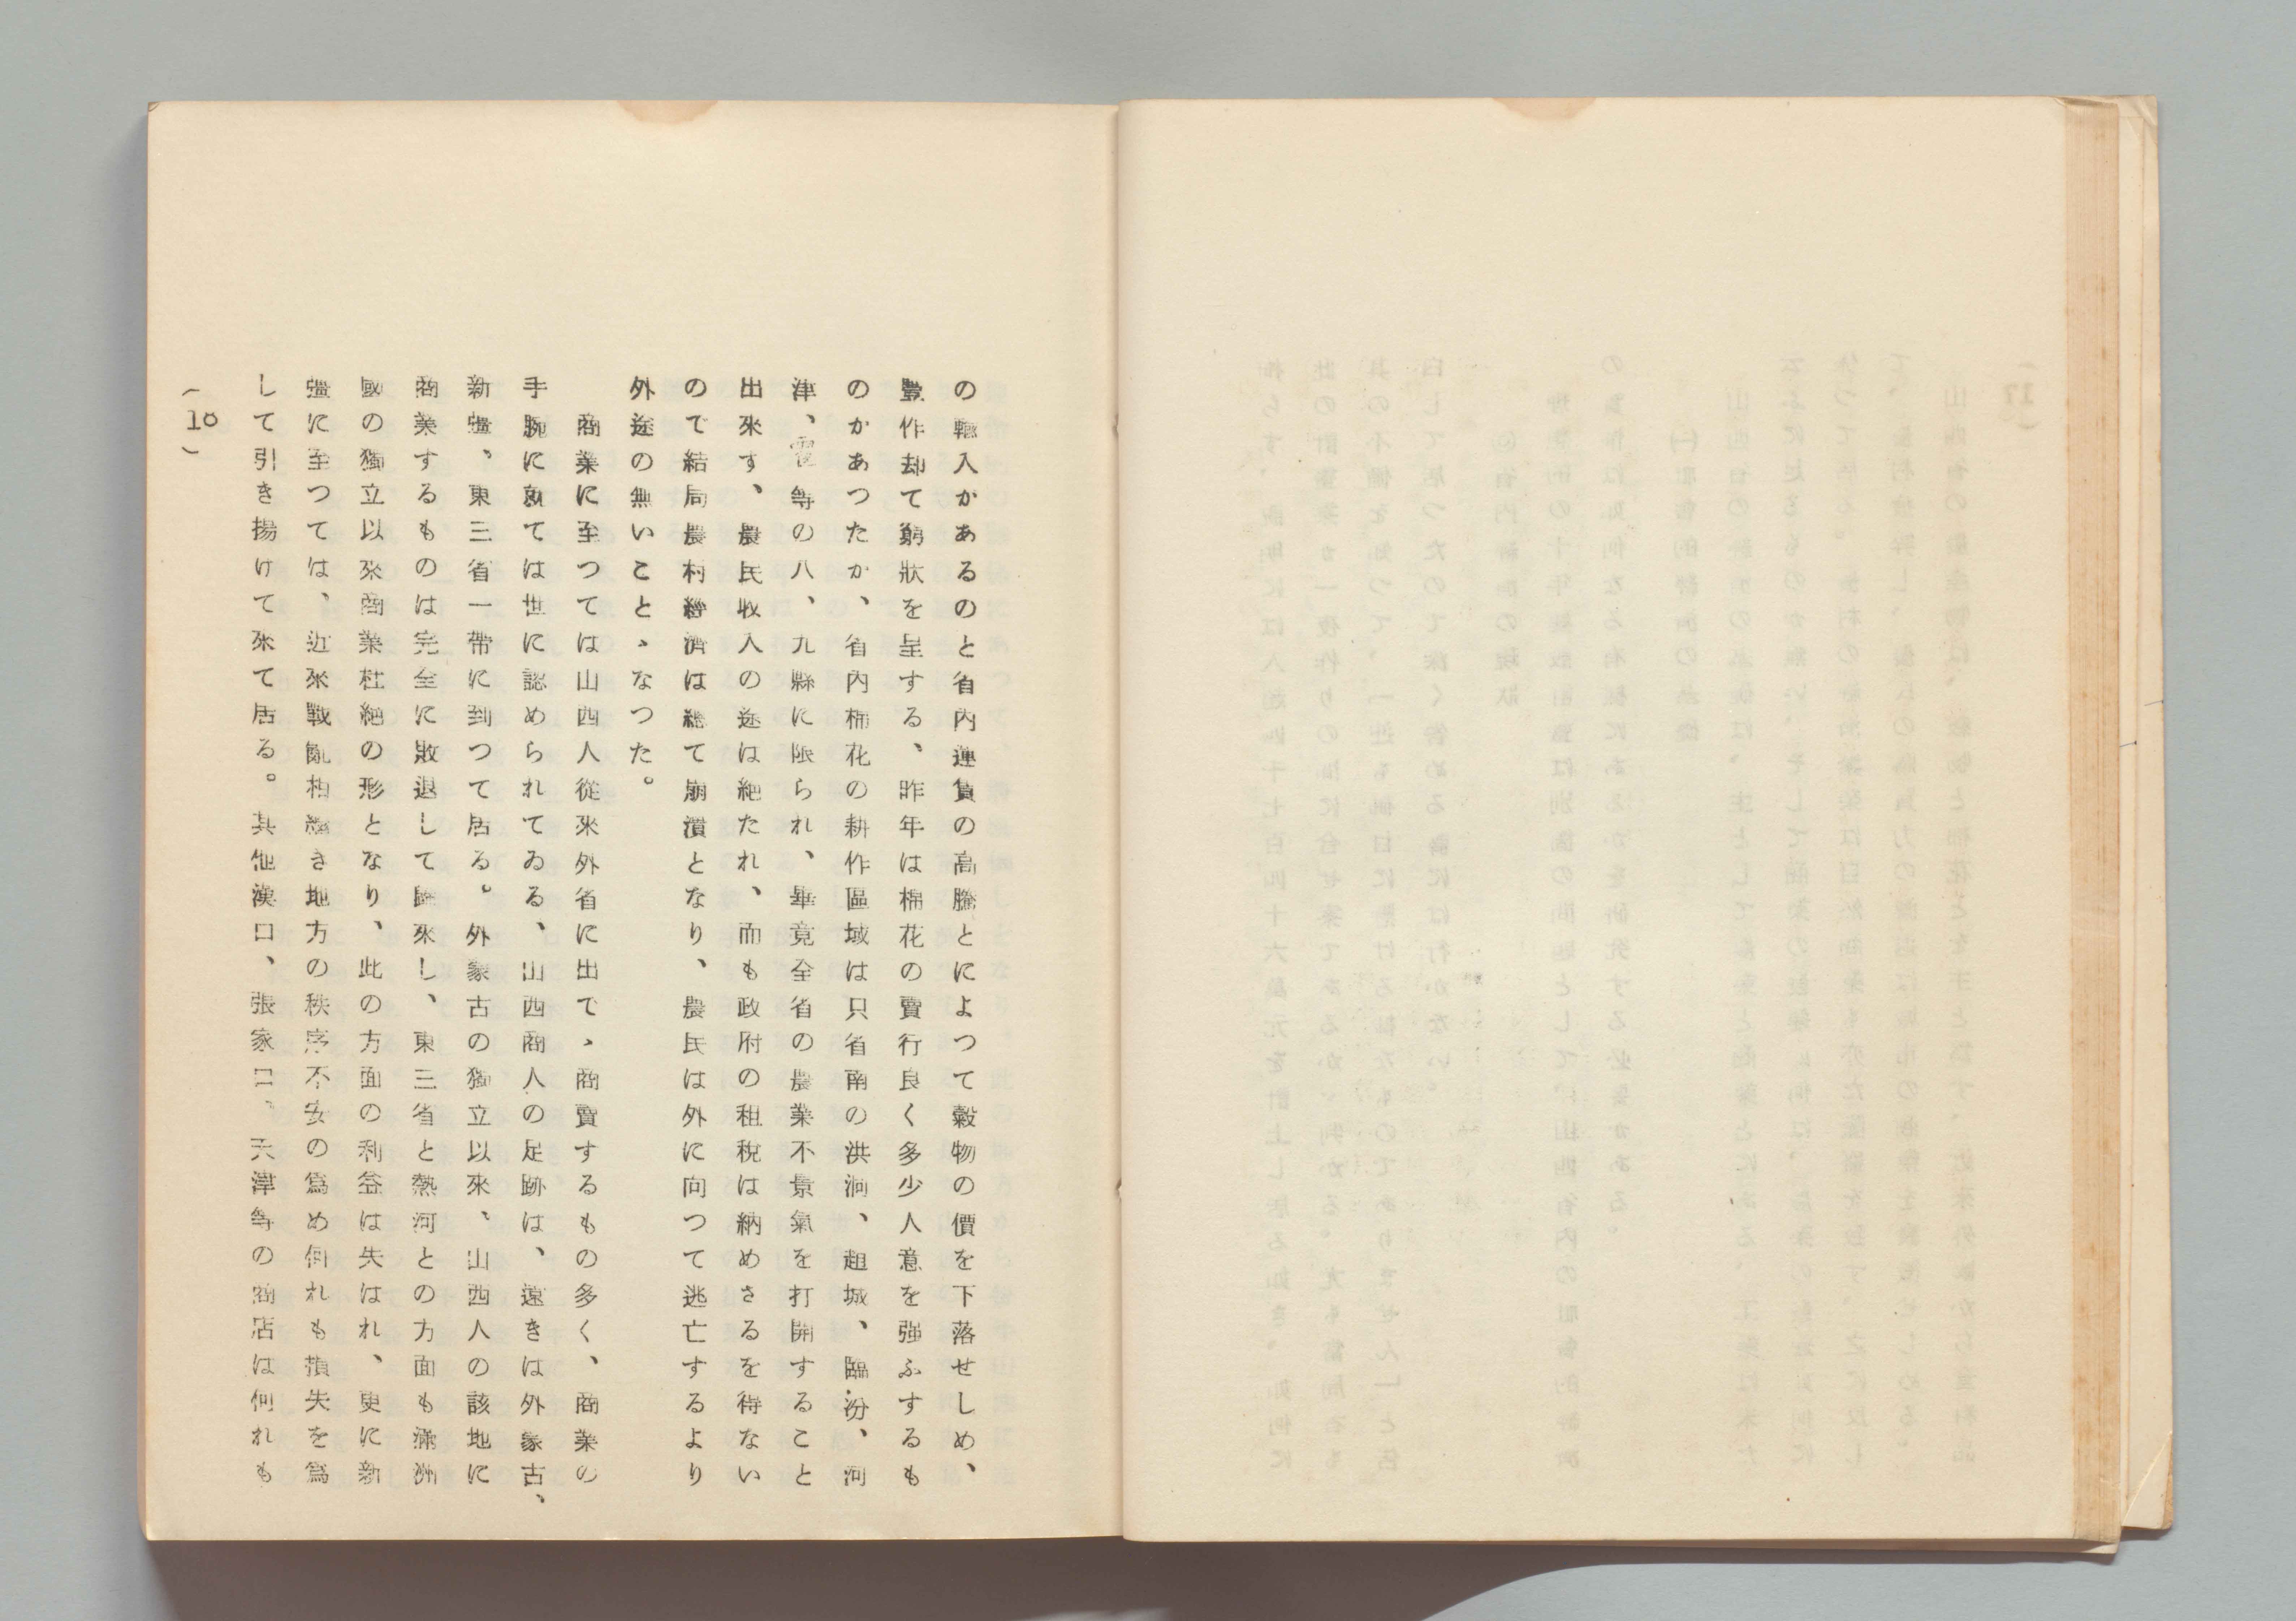 の輸入かあるのと省内運賃の高騰とによつて穀物の價を下落せしめ、
豊作却て窮狀を呈する、昨年は棉花の賣行良く多少人意を強ふするも
のかあつたか、省内棉花の耕作區域は只省南の洪洞、趙城、臨汾、河
津、霍等の八、九縣に限られ、畢竟全省の農業不景氣を打開すること
出來す、農民收入の途は絶たれ、而も政府の租税は納めさるを得ない
ので結局農村經濟は總て崩潰となり、農民は外に向つて逃亡するより
外途の無いことゝなつた。
商業に至つては山西人從來外省に出で、商賣するもの多く、商業の
手腕に就ては世に認められてゐる、山西商人の足跡は、遠きは外蒙古、
新疆、東三省一帶に到つて居る。外蒙古の獨立以來、山西人の該地に
商業するものは完全に敗退して歸來し、東三省と熱河との方面も滿洲
國の獨立以來商業杜絶の形となり、此の方面の利益は失はれ、更に新
疆に至つては、近來戰亂相繼き地方の秩序不安の爲め何れも損失を爲
して引き揚けて來て居る。其他漢口、張家口、天津等の商店は何れも
(18)